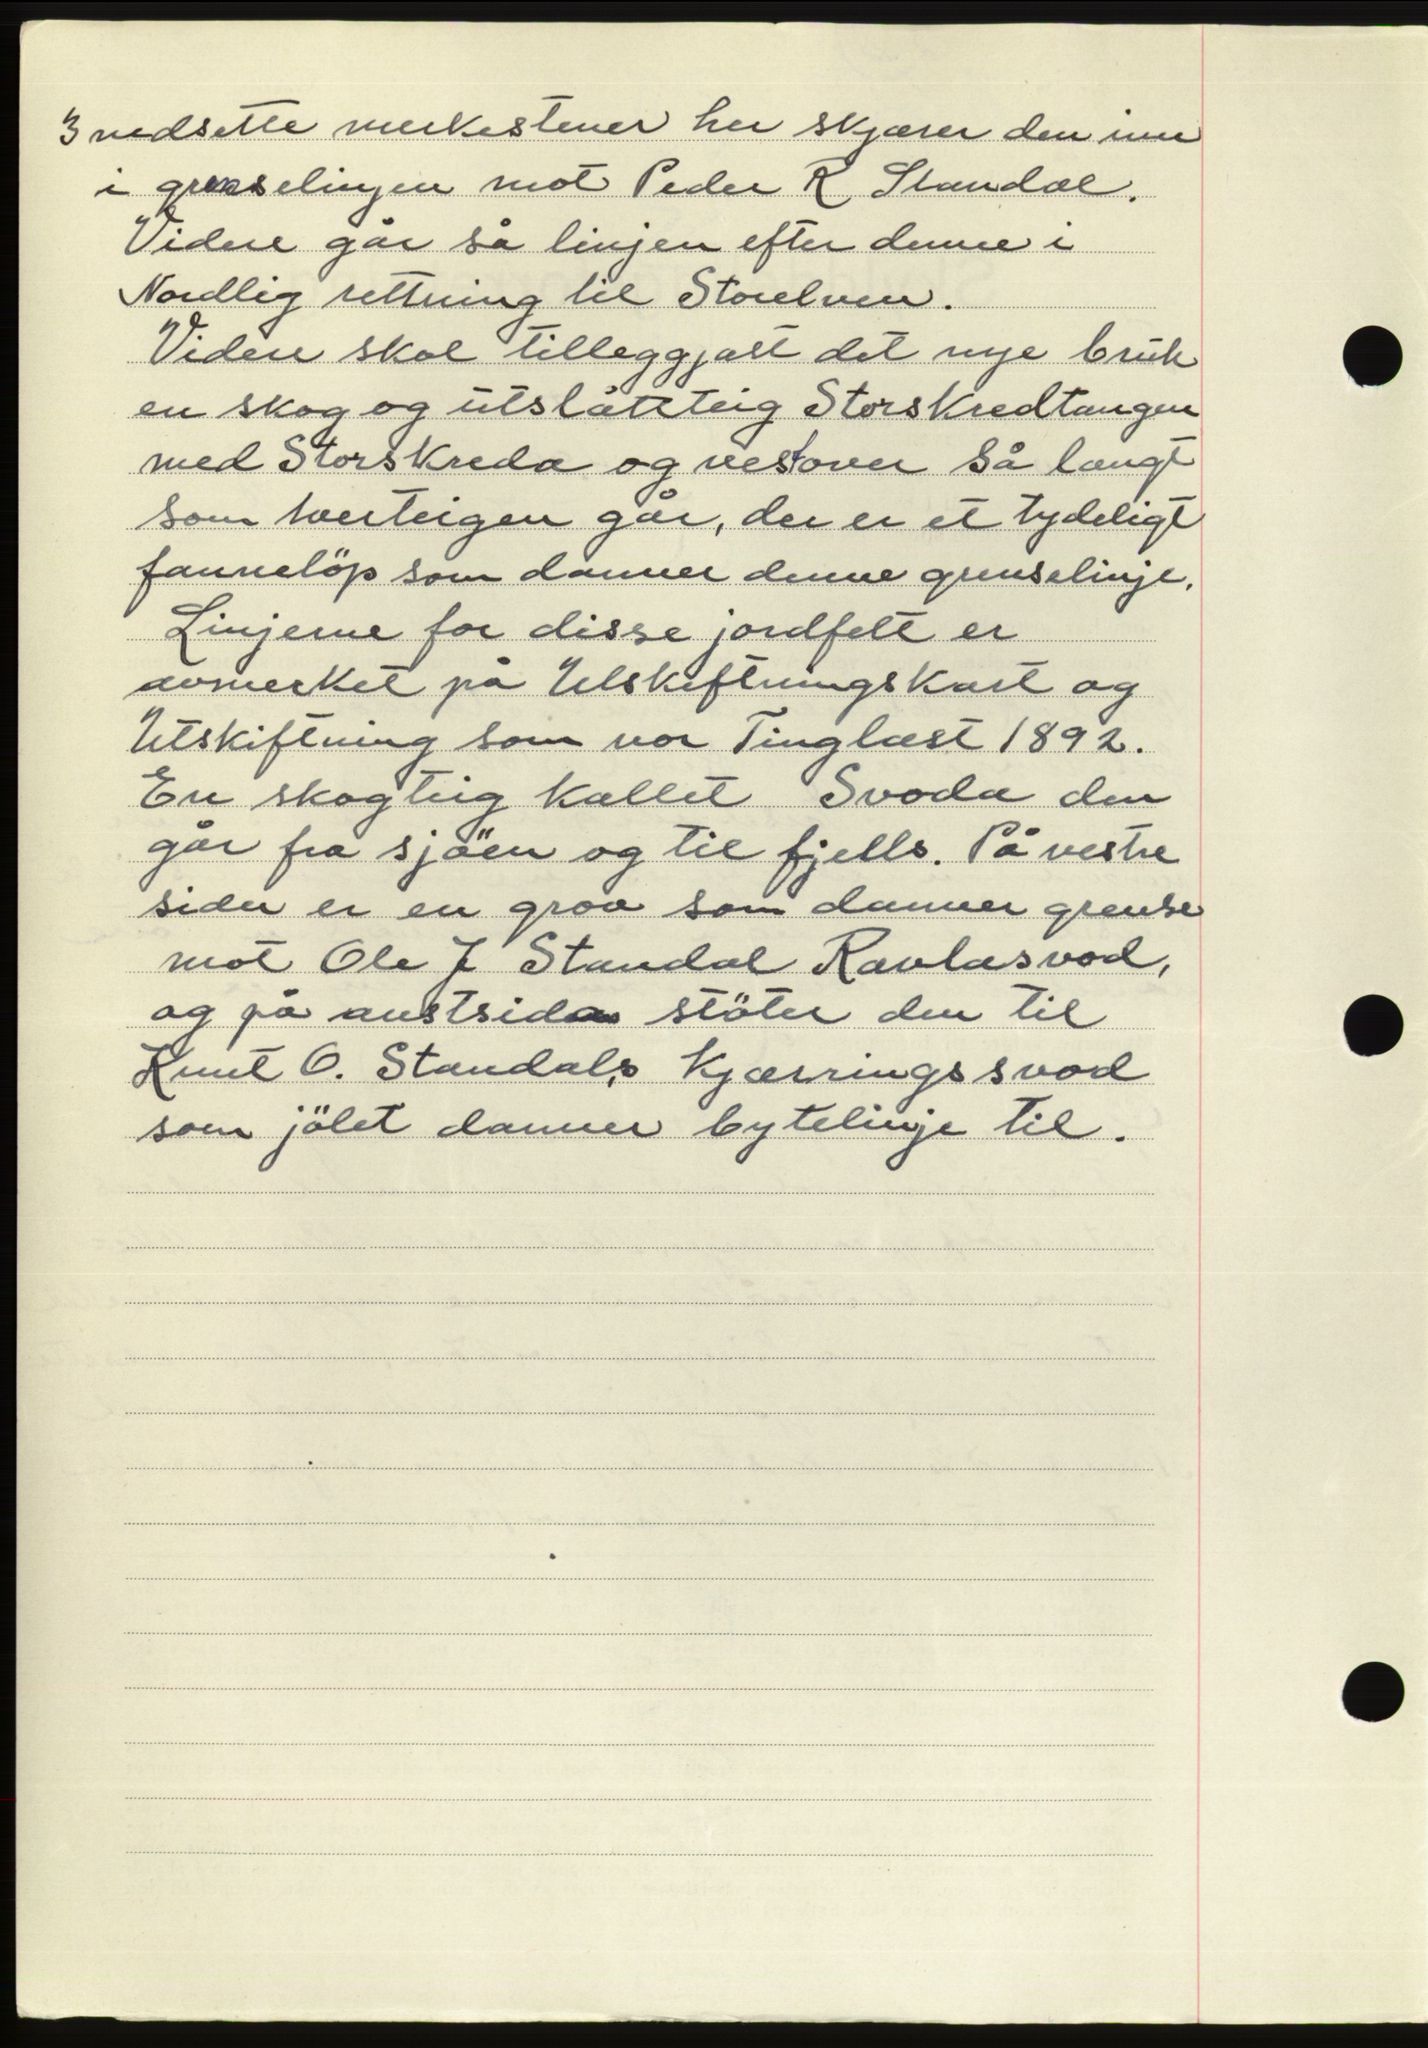 3 nedsette merkestener her skjærer den inn
i grenselinjen mot Peder R Standal.
Videre går så linjen efter denne i
Nordlig rettning til Storelven.
Videre skal tilleggjast det nye bruk
en skog og utslåtteig Storskredtangen
med Storskreda og vestover så langt
som tverteigen går, der er et tydeligt
fannelöp som danner denne grenselinje.
Linjerne for disse jordfelt er
avmerket på Utskiftningskart og
Utskiftning som var Tinglæst 1892.
En skogteig kallet Svoda den
går fra sjöen og til fjells. På vestre
siden er en grov som danner grense
mot Ole J Standal Ravlasvod,
og på austsida stöter den til
Knut O. Standals Kjærringssvod
som jölet danner bytelinje til.